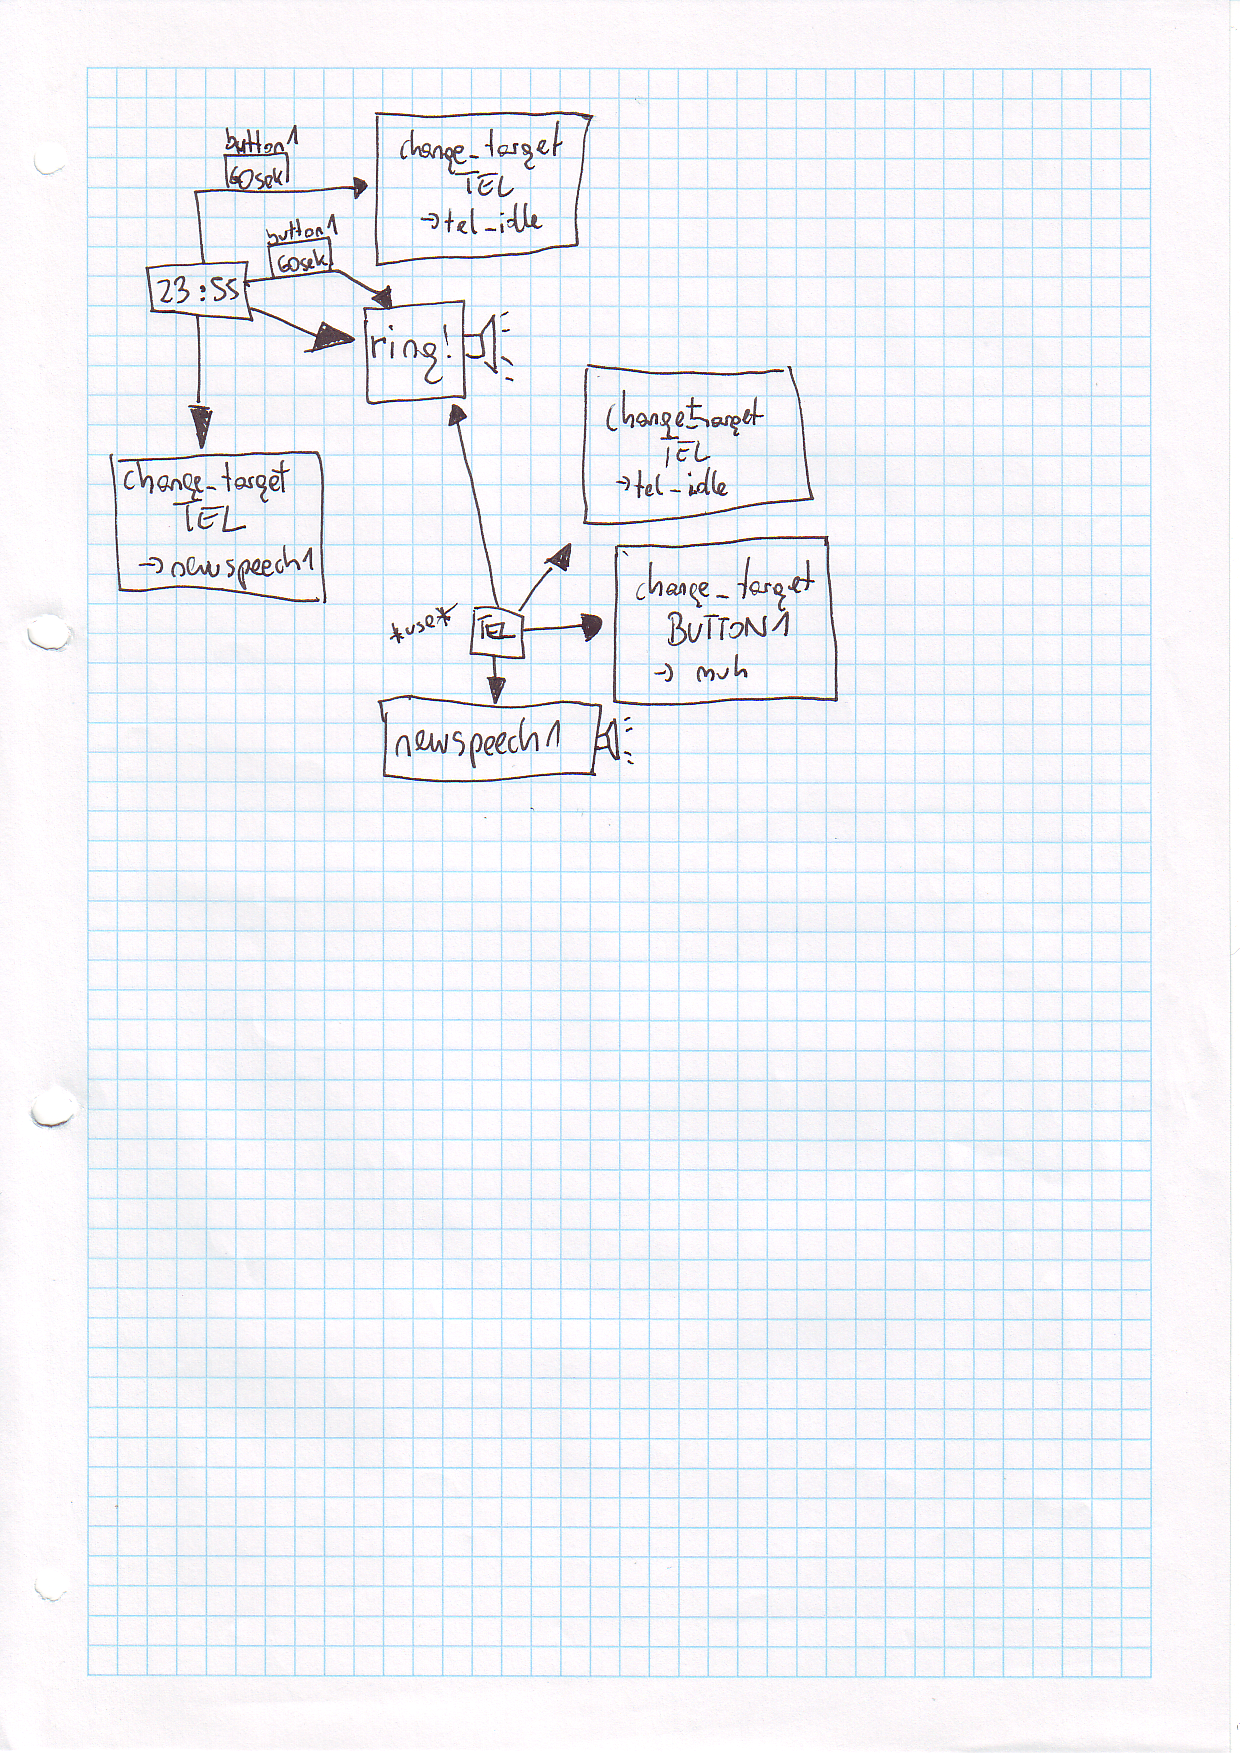 button1
60sek
change_target
TEL
→tel_idle
button1
60sek
23:55
ring!
change_target
TEL
→tel_idle
change_target
TEL
→newspeech1
change_target
BUTTON1
→ muh
*use*
TEL
newspeech1